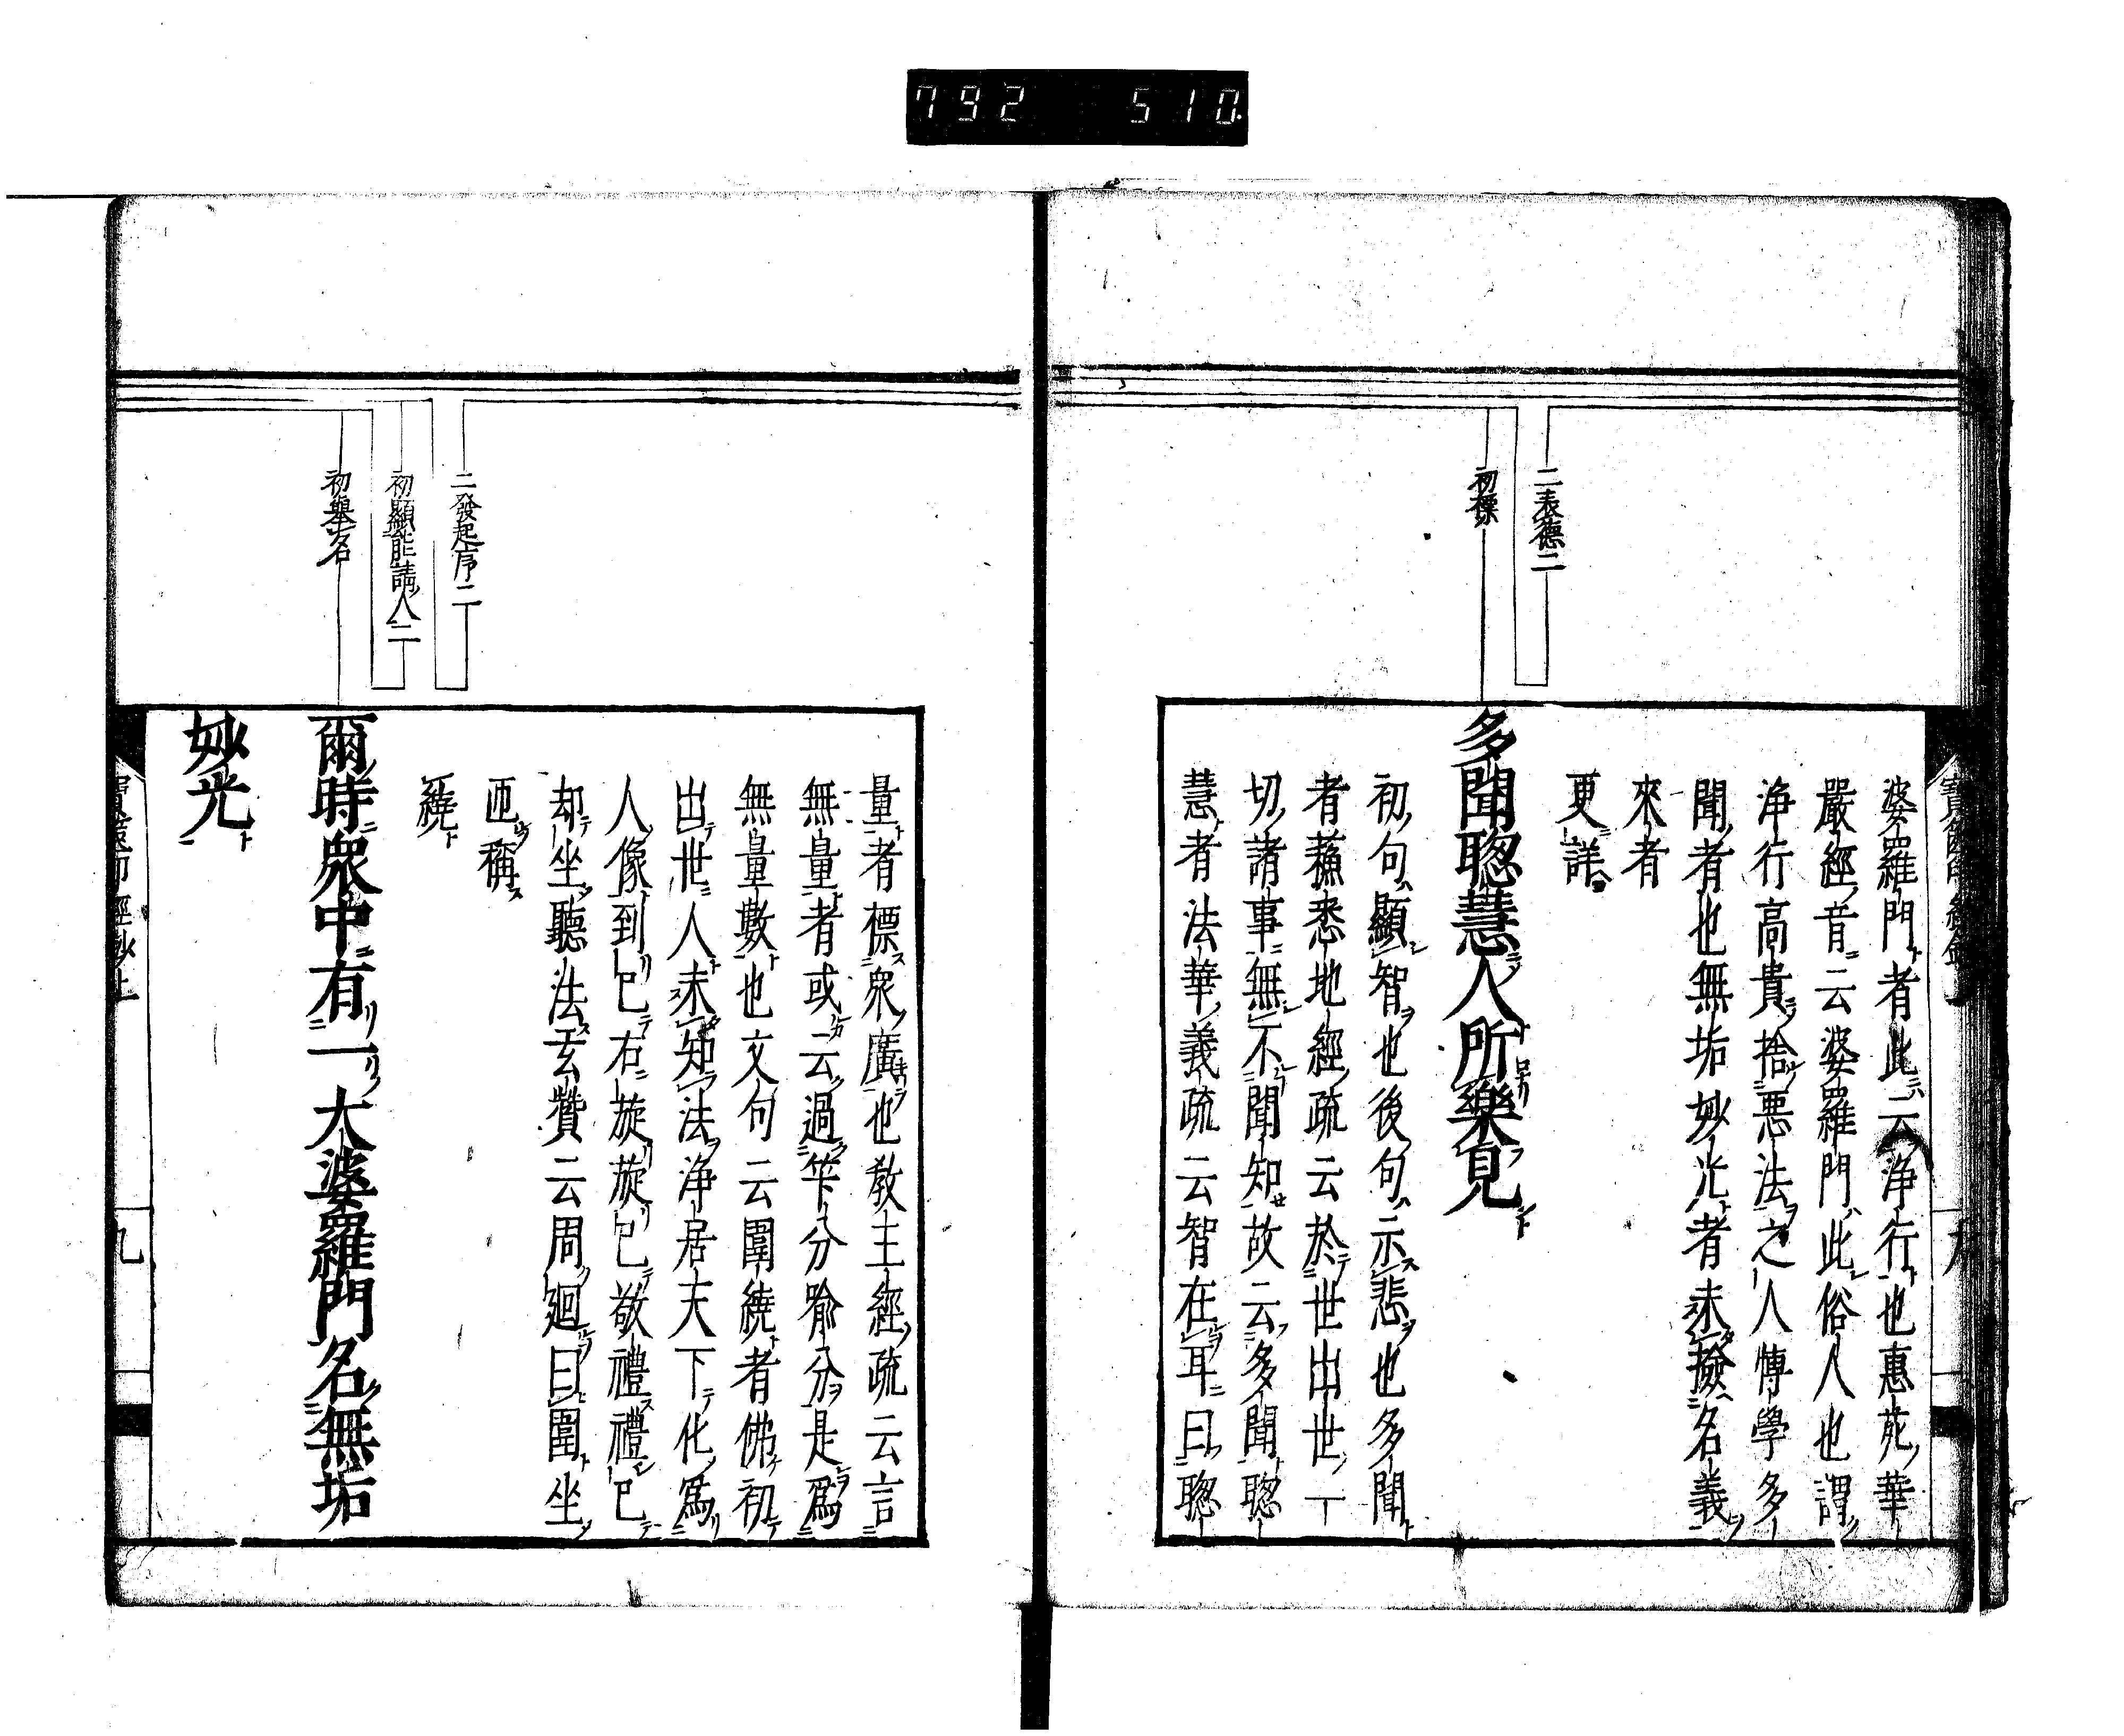 792 510
婆羅門者此云浄行也惠苑華
嚴經音云婆羅門此俗人也謂
浄行高貴捨悪法之人愽學多
聞者也無垢妙光者未撿名義
來者
更詳
二表德二
初標
多聞聦慧人所樂見
初句顯智也後句示悲也多聞
者蘓悉地經疏云於世出世一
切諸事無不聞知故云多聞聦
慧者法華義疏云智在耳曰聦
量者標衆廣也教主經疏云言
無量者或云過筭分喻分是爲
無量數也文句云圍繞者佛初
出世人未知法浄居天下化爲
人像到已右旋旋已敬禮禮已
却坐聽法玄贊云周𢌞曰圍坐
匝稱
繞
二發起序二
初顯能請人二
初舉名
爾時衆中有一大婆羅門名無垢
妙光
經鈔上
九